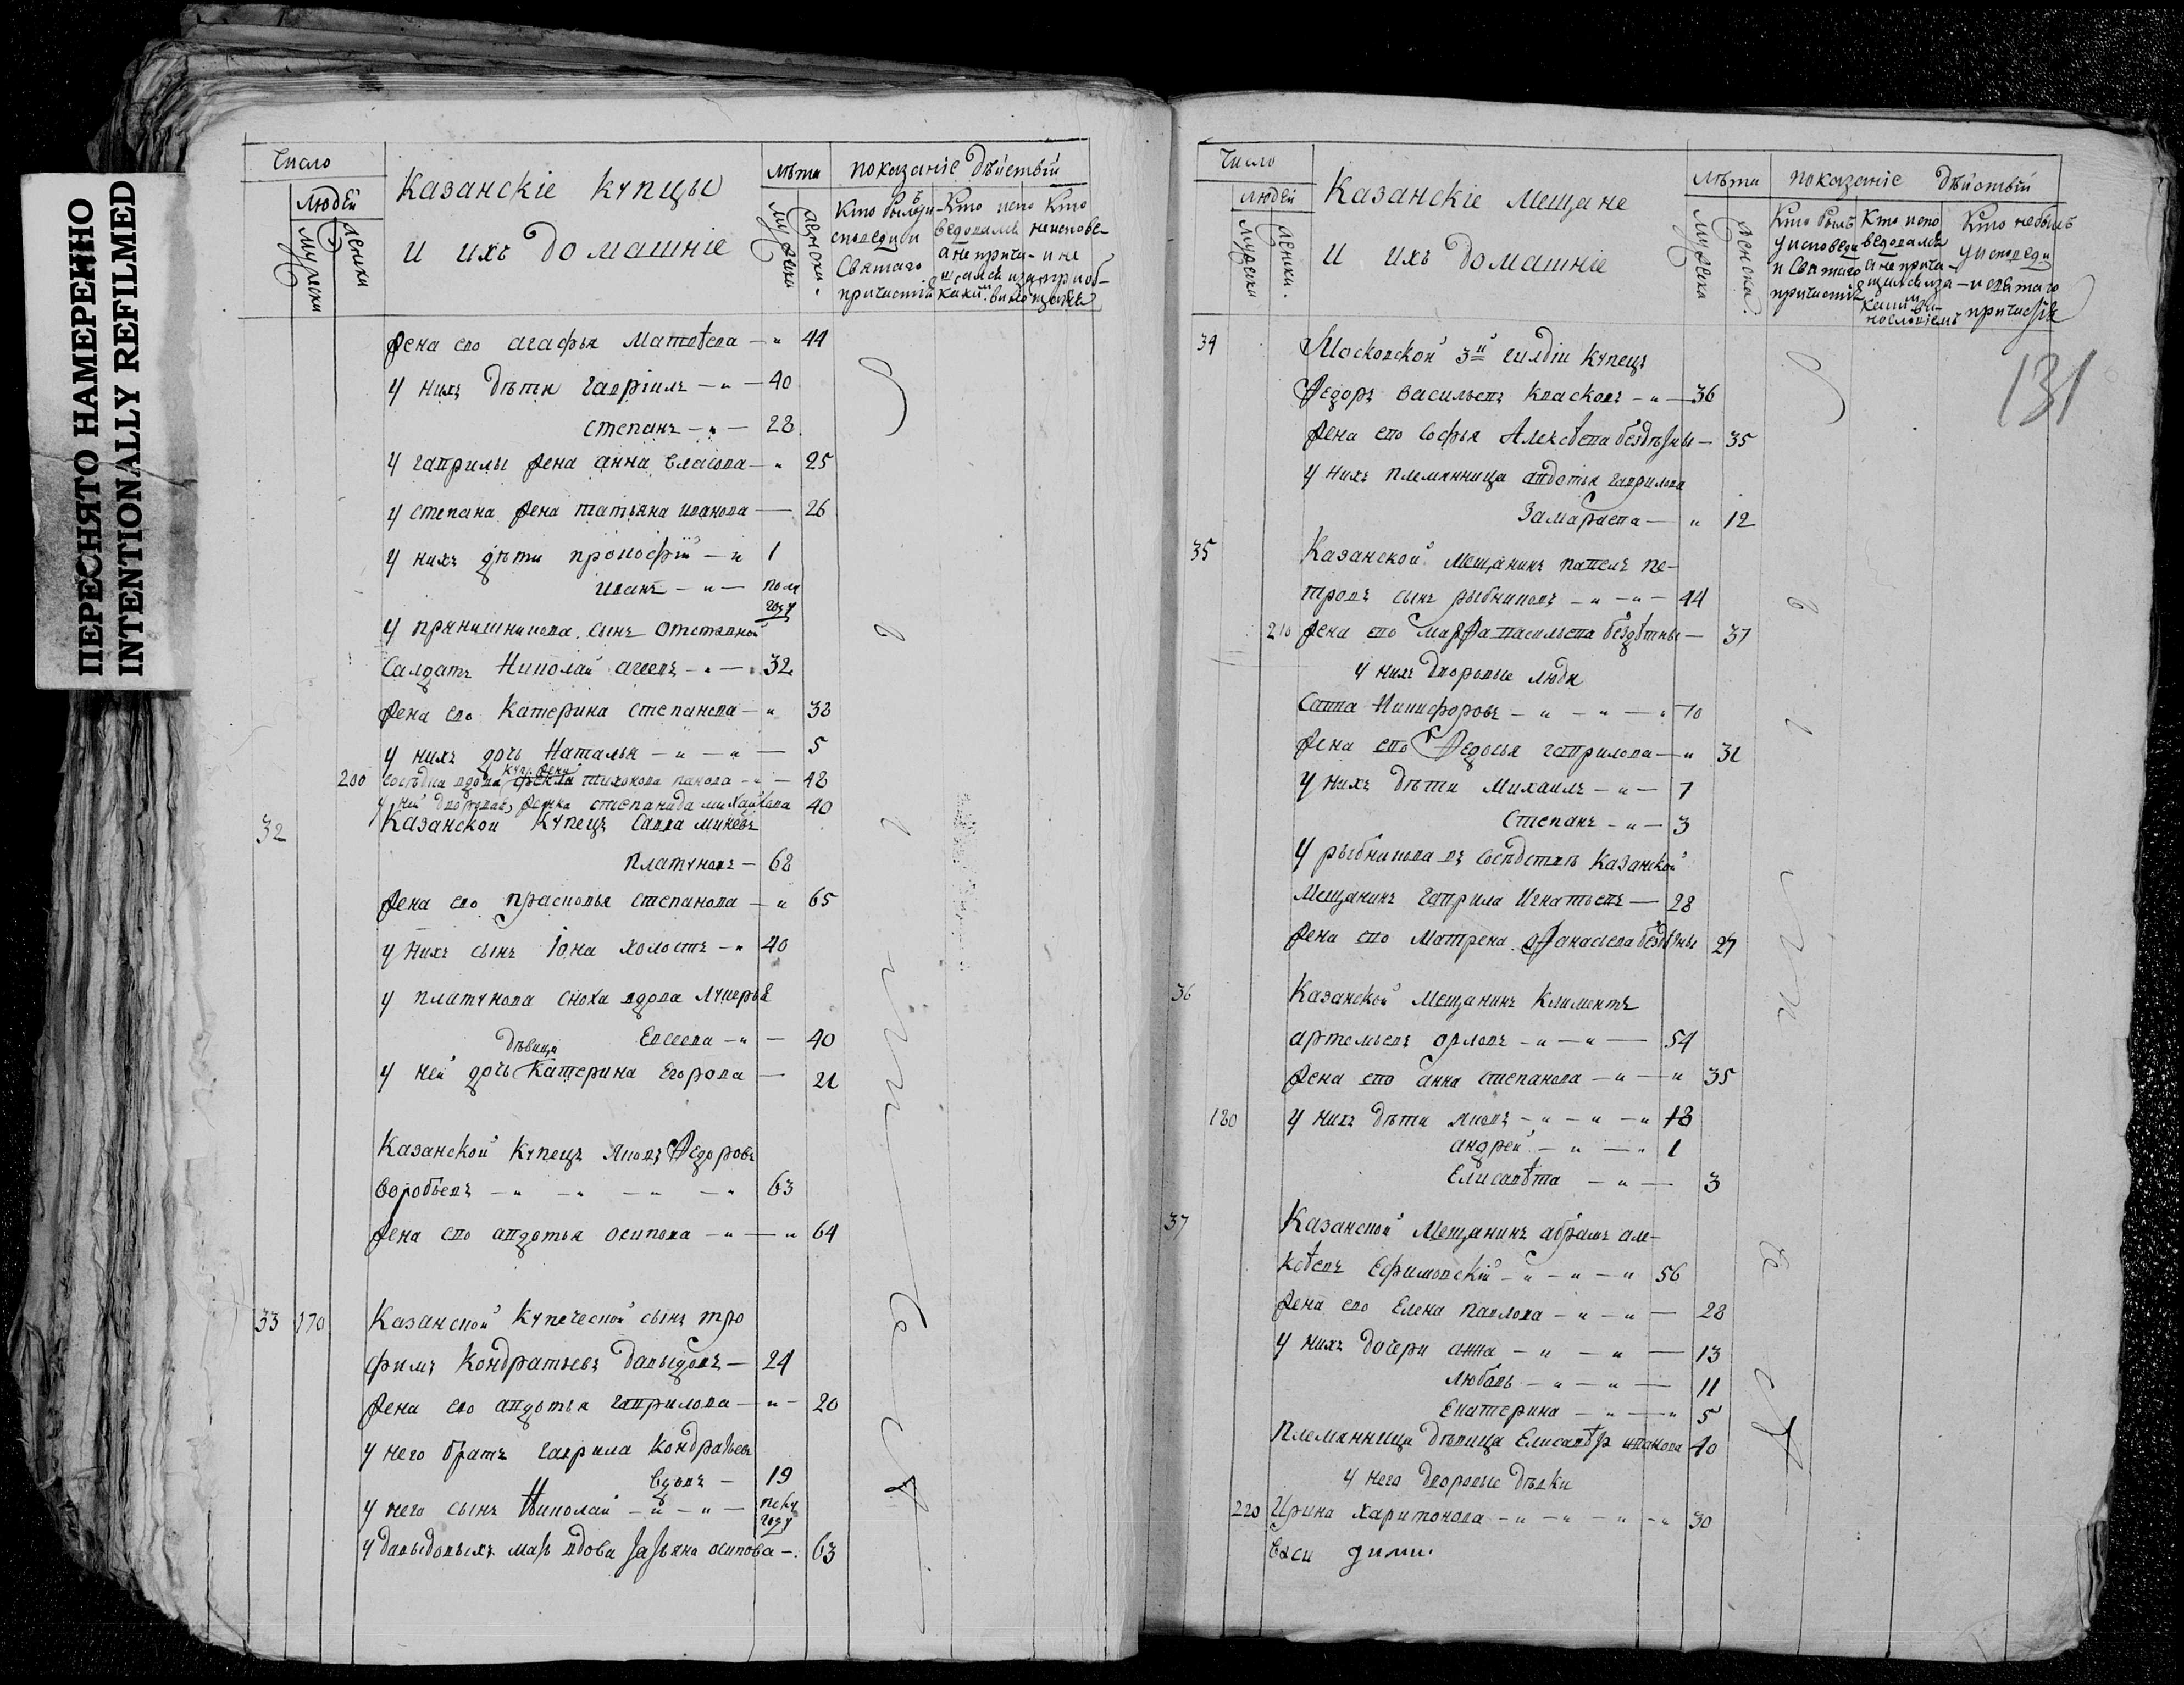 ПЕРЕСНЯТО НАМЕРЕННО
INTENTIONALLY REFILMED
Число
людей
мужеска
женска
Казанскіе купцы
и ихъ домашніе
лѣта
мужеска
женска
показаніе дѣйствій
Кто былъ у исповеди и святаго причастія
Кто исповедовался а не причащался и за какимъ
Кто не исповедался и не приобщался
жена ево агафья Матвѣева — " 44
у нихъ дѣти гавріилъ — " — 40
степанъ — " — 28
у гаврилы жена анна власова — " 25
у степана жена татьяна иванова — 26
у нихъ дѣти прокофій — " 1
иванъ — " — полгоду
у прянишникова сынъ отставной
салдатъ Николай агеевъ — " — 32
жена ево Катерина степанова — " 38
у нихъ дочь Наталья — " — " — 5
200 соседка вдова тихонова панова — " — 48
у ней дворовая женка степанида михайлова 40
32 Казанской купецъ савва минеевъ
платуновъ — 68
жена ево прасковья степанова — " 65
у нихъ сынъ Іона холостъ — " 40
у платунова сноха вдова лукерья
Евсеева — " — 40
дѣвица
у ней дочь Катерина Егорова — 21
Казанской купецъ яковъ Федоровъ
воробьевъ — " — " — " — " 63
жена ево авдотья осипова — " — " 64
33 170 Казанской купеческой сынъ тро
фимъ Кондратьевъ давыдовъ — 24
жена ево авдотья гаврилова — " — 20
у него братъ гаврила Кондратьевъ
вдовъ — 19
у него сынъ Николай — " — " — полугоду
у давыдовыхъ мать вдова татьяна осипова — 63
Число
людей
мужеска
женска
Казанскіе мещане
и ихъ домашніе
лѣта
мужеска
женска
показаніе дѣйствій
Кто былъ у исповеди и святаго причастія
Кто исповедовался а не причащался и за какимъ винословіемъ
Кто небылъ у исповеди и святаго причастія
131
34 Московской 3й гилдіи купецъ
Федоръ васильевъ квасковъ — " — 36
жена ево софья Алексѣева бездѣтны — 35
у нихъ племянница авдотья гаврилова
— " 12
35 Казанской мещанинъ павелъ пе-
тровъ сынъ рыбниковъ — " — " — 44
210 жена ево марфа васильева бездѣтны — 37
у нихъ дворовые люди
савва Никифоровъ — " — " — " 70
жена ево Федосья гаврилова — " 31
у нихъ дѣти михаилъ — " — 7
степанъ — " — 3
у рыбникова въ соседствѣ Казанской
мещанинъ гаврила игнатьевъ — 28
жена ево матрена афанасьева бездѣтны 27
36 Казанской мещанинъ климентъ
артемьевъ орловъ — " — " — 54
жена ево анна степанова — " — " 35
180 у нихъ дѣти яковъ — " — " — " 18
андрей — " — " 1
Елисавѣта — " — 3
37 Казанской мещанинъ абрамъ але-
ксѣевъ Ефимовскій — " — " — " 56
жена ево Елена павлова — " — " — 28
у нихъ дочери анна — " — " — 13
любовь — " — " — 11
Екатерина — " — " 5
племянница дѣвица Елисаветъ иванова 40
у него дворовые дѣвки
220 Ирина харитонова — " — " — " — " 30